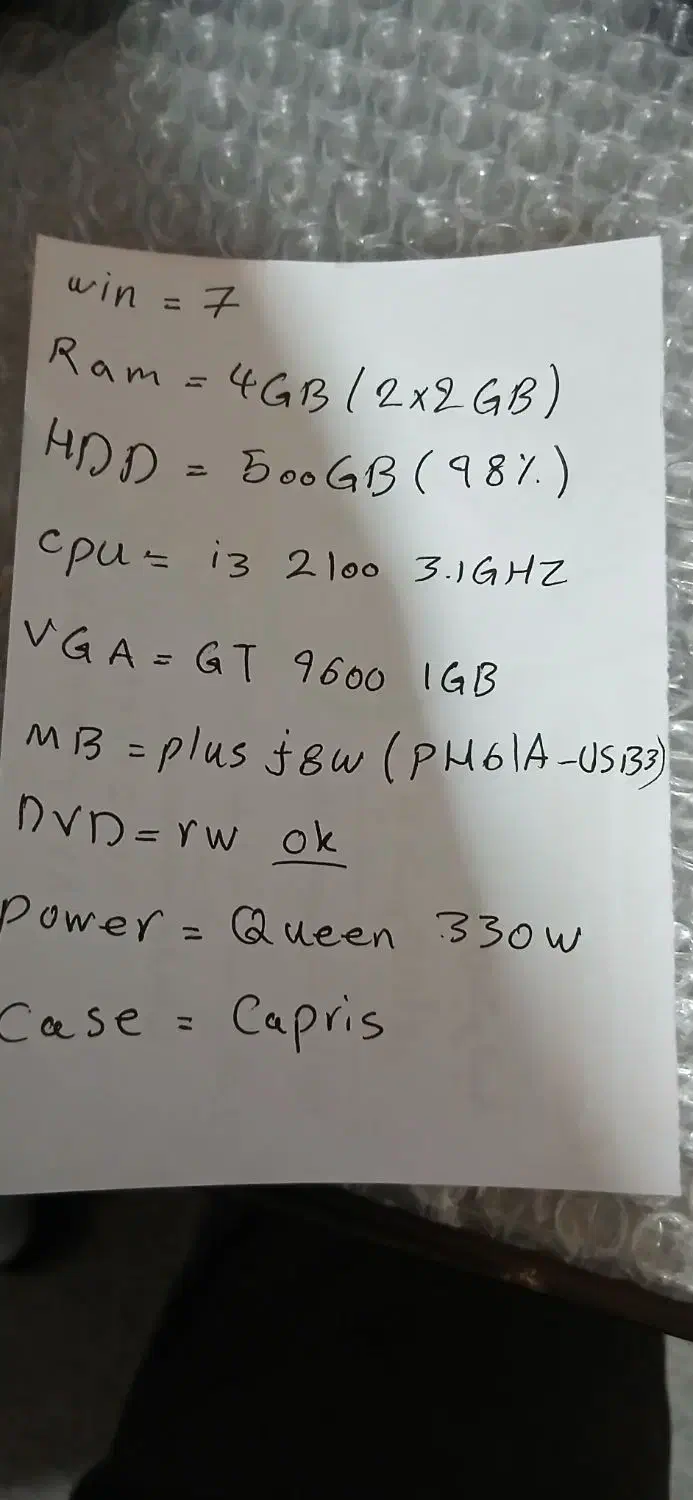 win = 7
Ram = 4GB (2x2GB)
HDD = 500GB (98%)
cpu = i3 2100 3.1GHZ
VGA = GT 9600 1GB
MB = plus j8w (PH61A-USB3)
DVD = rw ok
Power = Queen 330w
Case = Capris